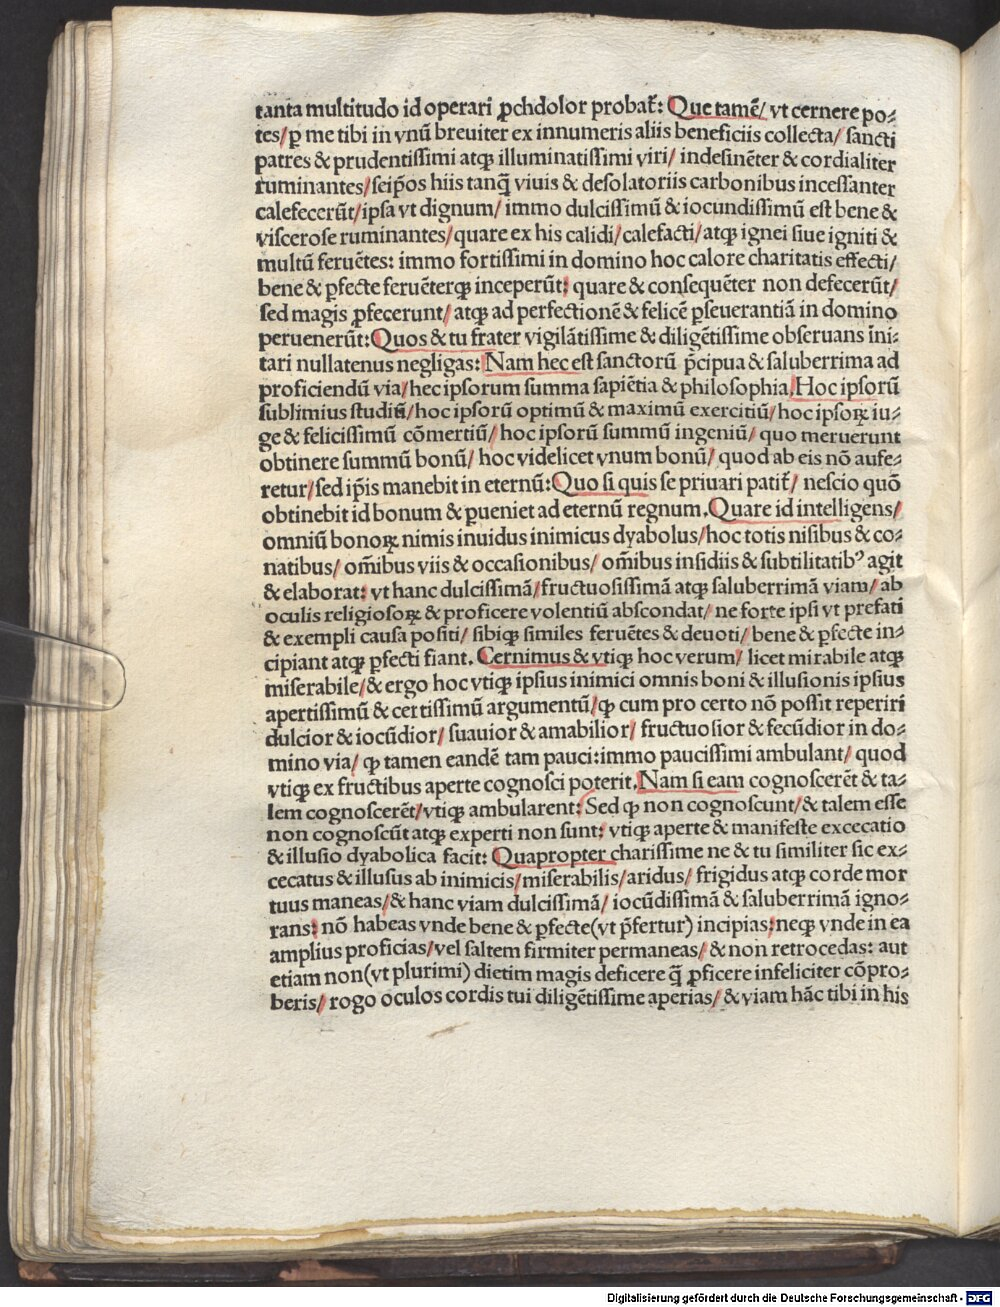 tanta multitudo id operari ꝓchdolor probat᷑: Que tamē/ vt cernere po⸗
tes/ ꝑ me tibi in vnū breuiter ex innumeris aliis beneficiis collecta/ sancti
patres & prudentissimi atqꝫ illuminatissimi viri/ indesinēter & cordialiter
ruminantes/ seip̄os hiis tanq̄ȝ viuis & desolatoriis carbonibus incessanter
calefecerūt/ ipsa vt dignum/ immo dulcissimū & iocundissimū est bene &
viscerose ruminantes/ quare ex his calidi/ calefacti/ atqꝫ ignei siue igniti &
multū feruētes: immo fortissimi in domino hoc calore charitatis effecti/
bene & ꝑfecte feruēterqꝫ inceperūt: quare & consequēter non defecerūt/
sed magis ꝓfecerunt/ atqꝫ ad perfectionē & felicē ꝑseuerantiā in domino
peruenerūt: Quos & tu frater vigilātissime & diligētissime obseruans īni⸗
tari nullatenus negligas: Nam hec est sanctorū p̄cipua & saluberrima ad
proficiendū via/ hec ipsorum summa sapiētia & philosophia. Hoc ipsorū
sublimius studiū/ hoc ipsorū optimū & maximū exercitiū/ hoc ipsoꝝ iu⸗
ge & felicissimū cōmertiū/ hoc ipsorū summū ingeniū/ quo meruerunt
obtinere summū bonū/ hoc videlicet vnum bonū/ quod ab eis nō aufe⸗
retur/ sed ip̄is manebit in eternū: Quo si quis se priuari patit᷑/ nescio quō
obtinebit id bonum & ꝑueniet ad eternū regnum. Quare id intelligens/
omniū bonoꝝ nimis inuidus inimicus dyabolus/ hoc totis nisibus & co⸗
natibus/ om̄ibus viis & occasionibus/ om̄ibus insidiis & subtilitatibꝰ agit
& elaborat: vt hanc dulcissimā/ fructuosissimā atqꝫ saluberrimā viam/ ab
oculis religiosoꝝ & proficere volentiū abscondat/ ne forte ipsi vt prefati
& exempli causa positi/ sibiqꝫ similes feruētes & deuoti/ bene & ꝑfecte in⸗
cipiant atqꝫ ꝑfecti fiant. Cernimus & vtiqꝫ hoc verum/ licet mirabile atqꝫ
miserabile/ & ergo hoc vtiqꝫ ipsius inimici omnis boni & illusionis ipsius
apertissimū & certissimū argumentū/ qꝫ cum pro certo nō possit reperiri
dulcior & iocūdior/ suauior & amabilior/ fructuosior & fecūdior in do⸗
mino via/ qꝫ tamen eandē tam pauci: immo paucissimi ambulant/ quod
vtiqꝫ ex fructibus aperte cognosci poterit. Nam si eam cognoscerēt & ta⸗
lem cognoscerēt/ vtiqꝫ ambularent: Sed qꝫ non cognoscunt/ & talem esse
non cognoscūt atqꝫ experti non sunt: vtiqꝫ aperte & manifeste excecatio
& illusio dyabolica facit: Quapropter charissime ne & tu similiter sic ex⸗
cecatus & illusus ab inimicis/ miserabilis/ aridus/ frigidus atqꝫ corde mor
tuus maneas/ & hanc viam dulcissimā/ iocūdissimā & saluberrimā igno⸗
rans: nō habeas vnde bene & ꝑfecte (vt p̄fertur) incipias: neqꝫ vnde in ea
amplius proficias/ vel saltem firmiter permaneas/ & non retrocedas: aut
etiam non (vt plurimi) dietim magis deficere q̄ȝ ꝓficere infeliciter cōpro⸗
beris/ rogo oculos cordis tui diligētissime aperias/ & viam hāc tibi in his
Digitalisierung gefördert durch die Deutsche Forschungsgemeinschaft - DFG